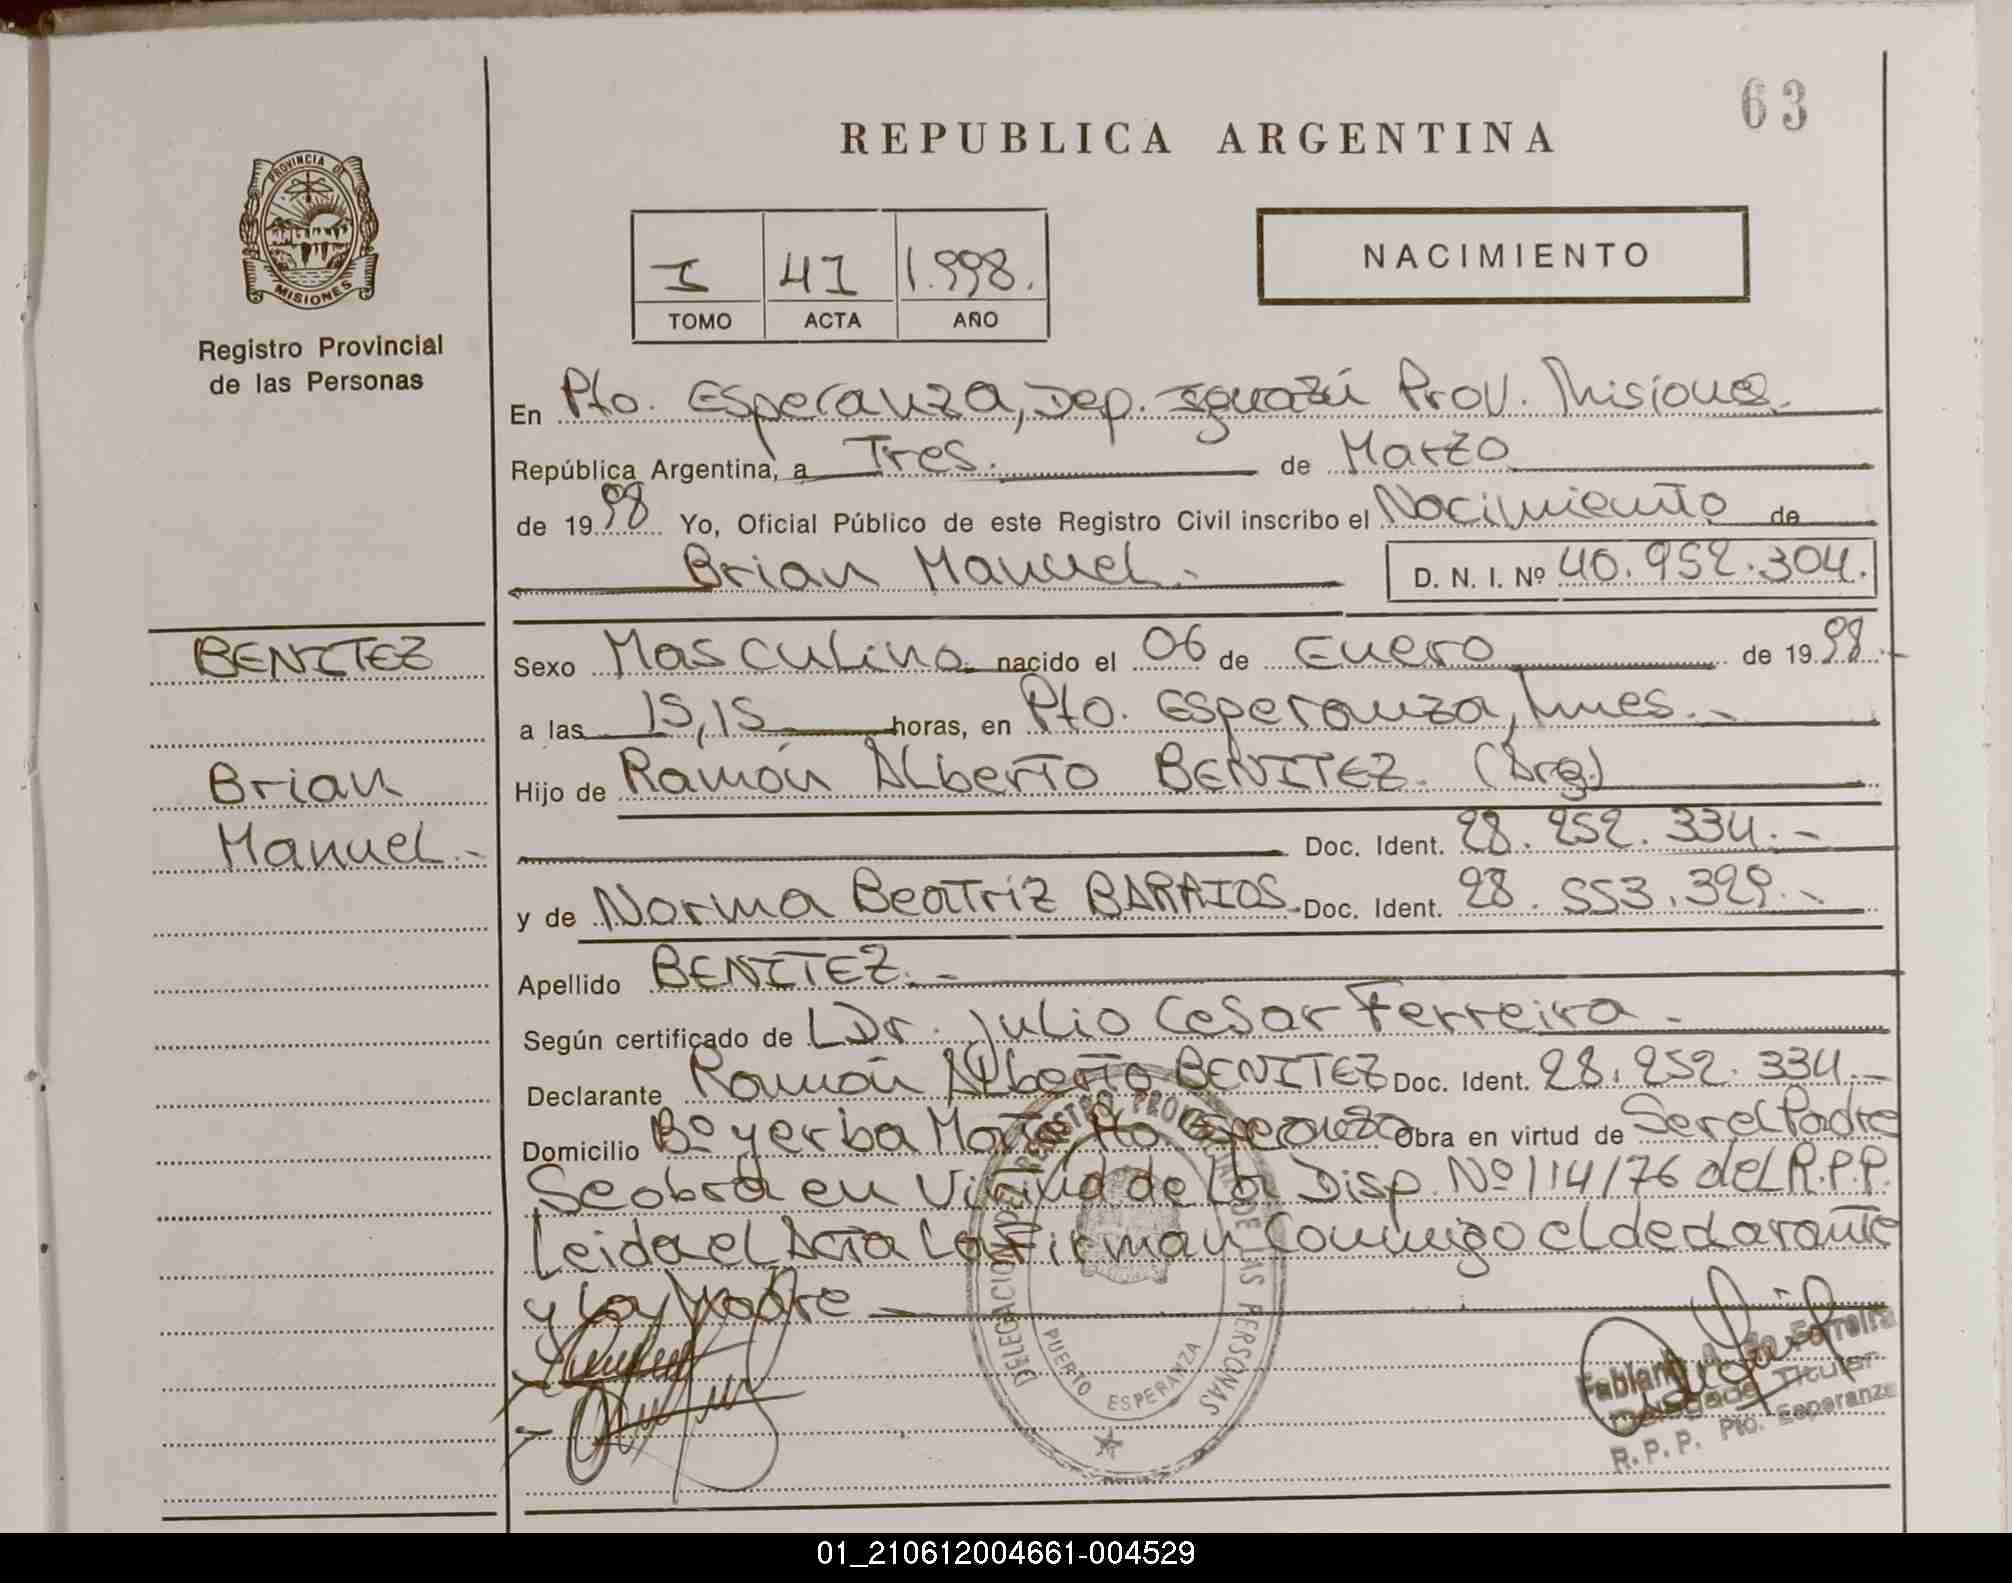 63
REPUBLICA ARGENTINA
PROVINCIA DE
MISIONES
Registro Provincial
de las Personas
I 41 1.998.
TOMO ACTA AÑO
NACIMIENTO
En Pto. Esperanza, Dep. Iguazú Prov. Misiones.
República Argentina, a Tres. de Marzo
de 1998 Yo, Oficial Público de este Registro Civil inscribo el Nacimiento de
Brian Manuel.- D. N. I. Nº 40.952.304.
BENITEZ
Brian
Manuel.-
Sexo Masculino. nacido el 06 de Enero de 1998.-
a las 15,15 horas, en Pto. Esperanza, Mnes.-
Hijo de Ramón Alberto BENITEZ. (Arg.)
Doc. Ident. 28.252.334.-
y de Norma Beatriz BARRIOS. Doc. Ident. 28.553.329.-
Apellido BENITEZ.-
Según certificado de LDr. Julio Cesar Ferreira.-
Declarante Ramón Alberto BENITEZ Doc. Ident. 28.252.334.-
Domicilio Bº yerba Mate Pto. Esperanza Obra en virtud de Ser el Padre
Se obra en Virtud de La Disp. Nº 114/76 del R.P.P.
Leida el Acta La Firman Conmigo el declarante
y La Madre
DELEGACION DEL REGISTRO PROVINCIAL DE LAS PERSONAS
PUERTO ESPERANZA
Ferreira
Delegado Titular
R.P.P. Pto. Esperanza
01_210612004661-004529